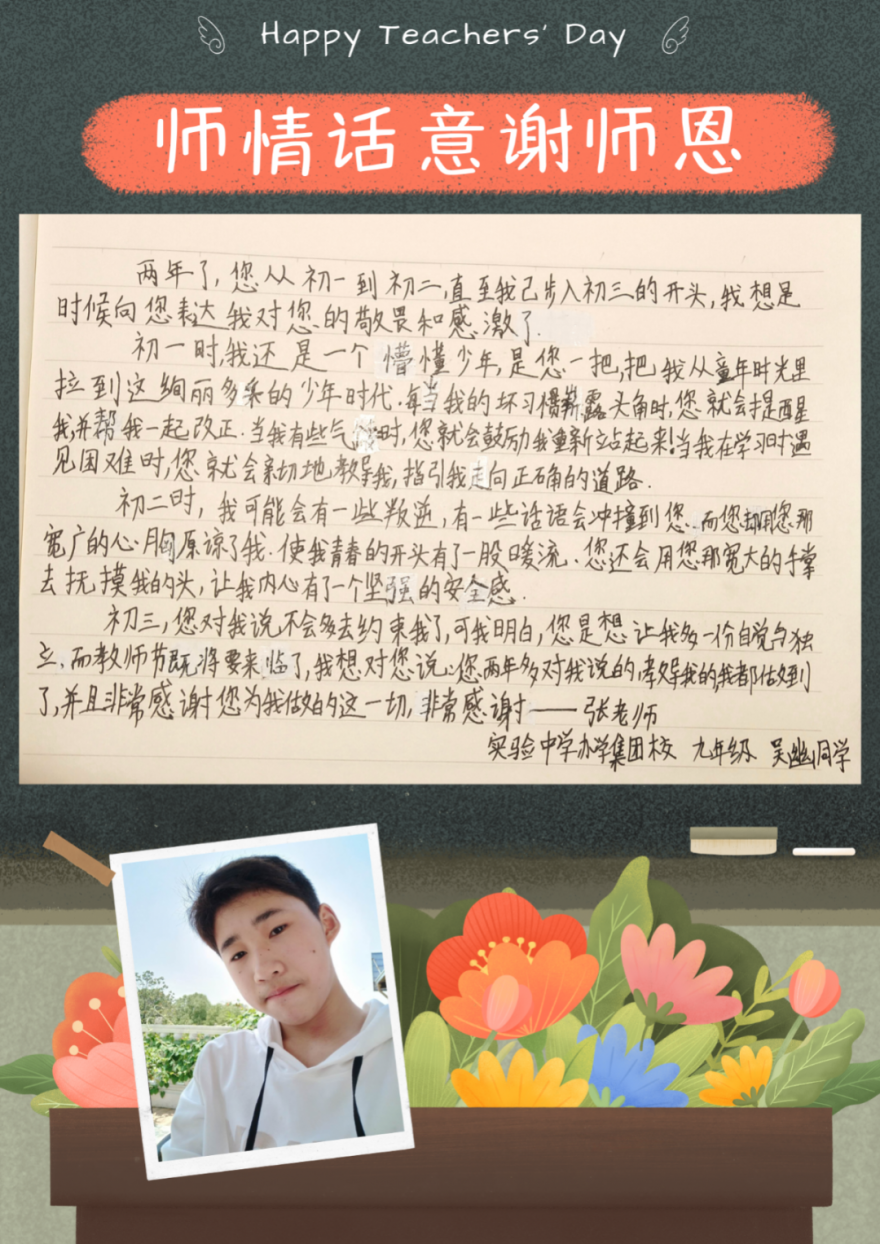 Happy Teachers' Day
师情话意谢师恩
两年了,您从初一到初二,直至我已步入初三的开头,我想是
时候向您表达我对您的敬畏和感激了.
初一时,我还是一个懵懂少年,是您一把,把我从童年时光里
拉到这绚丽多采的少年时代.每当我的坏习惯崭露头角时,您就会提醒
我,并帮我一起改正.当我有些气馁时,您就会鼓励我重新立站起来!当我在学习时遇
见困难时,您就会亲切地教导我,指引我走向正确的道路.
初二时,我可能会有一些叛逆,有一些话语会冲撞到您.而您却用您那
宽广的心胸原谅了我.使我青春的开头有了一股暖流.您还会用您那宽大的手掌
去抚摸我的头,让我内心有了一个坚强的安全感.
初三,您对我说不会多去约束我了,可我明白,您是想让我多一份自觉与独
立.而教师节既将要来临了,我想对您说:您两年多对我说的,教导我的,我都做到
了,并且非常感谢您为我做的这一切,非常感谢——张老师
实验中学办学集团本校 九年级 吴幽同学